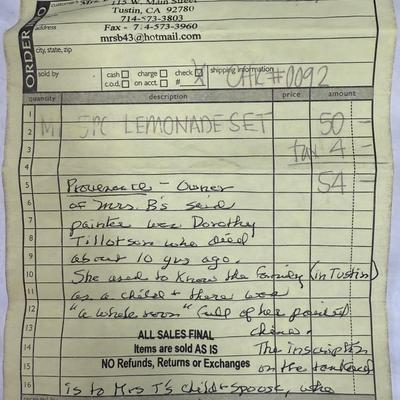 113 W. Main Street
Tustin, CA 92780
714-573-3803
Fax - 714-573-3960
mrsb43@hotmail.com
ORDER
customer's
address
city, state, zip
sold by
cash
charge
check X
shipping information
c.o.d.
on acct.
#
CHK #0092
quantity
description
price
amount
1
2 5PC LEMONADE SET 50 -
3 tax 4 -
4
54 -
5 Provenance - Owner
6 of Mrs. B's said
7 painter was Dorothy
8 Tillotson who died
9 about 10 yrs ago.
10 She used to know the family (in Tustin)
11 as a child + there was
12 "a whole room" full of her painted
13 china.
ALL SALES FINAL
14 Items are sold AS IS
The inscription
15 No Refunds, Returns or Exchanges
on the tankard
16 is to Mrs T's child + spouse, who
received by